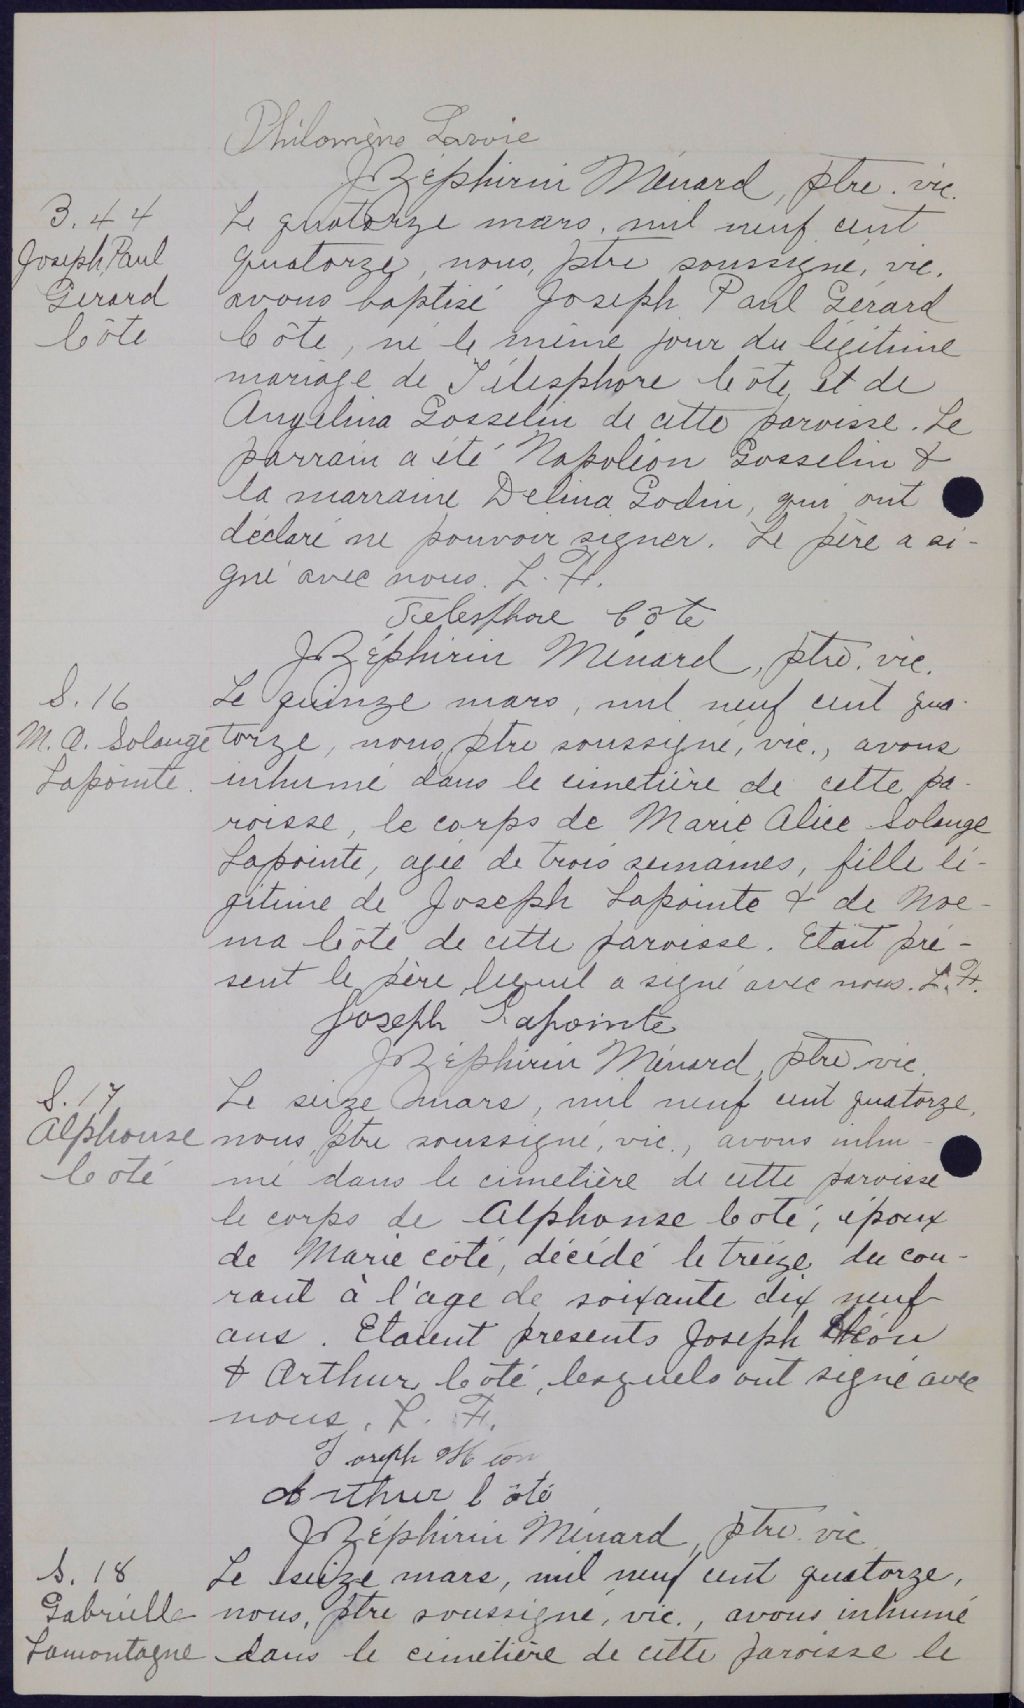 Philomène Lavoie
J Zéphirin Ménard, ptre. vic.
B. 44
Joseph Paul
Gerard
Côté
Le quatorze mars, mil neuf cent
quatorze, nous, ptre soussigné, vic.
avons baptisé Joseph Paul Gérard
Côte, né le même jour du légitime
mariage de Télesphore Côte, et de
Angelina Gosselin de cette paroisse. Le
parrain a été Napoléon Gosselin &
la marraine Delina Godin, qui ont
déclaré ne pouvoir signer. Le père a si-
gné avec nous. L. F.
Telesphore Côte
J Zéphirin Ménard, ptre. vic.
S. 16
M. A. Solange
Lapointe.
Le quinze mars, mil neuf cent qua-
torze, nous, ptre soussigné, vic., avons
inhumé dans le cimetière de cette pa-
roisse, le corps de Marie Alice Solange
Lapointe, agée de trois semaines, fille lé-
gitime de Joseph Lapointe & de Noe-
ma Côté de cette paroisse. Etait pré-
sent le père lequel a signé avec nous. L. F.
Joseph Lapointe
J Zéphirin Ménard, ptre. vic.
S. 17
Alphonse
Coté
Le seize mars, mil neuf cent quatorze,
nous, ptre soussigné, vic., avons inhu-
mé dans le cimetière de cette paroisse
le corps de Alphonse Coté, époux
de Marie Côté, décédé le treize du cou-
rant à l'age de soixante dix neuf
ans. Etaient presents Joseph Héon
& Arthur Côté, lesquels ont signé avec
nous. L. F.
Joseph Héon
Arthur Côté
J Zéphirin Ménard, ptre. vic
S. 18
Gabrielle
Lamontagne
Le seize mars, mil neuf cent quatorze,
nous, ptre soussigné, vic., avons inhumé
dans le cimetière de cette paroisse le